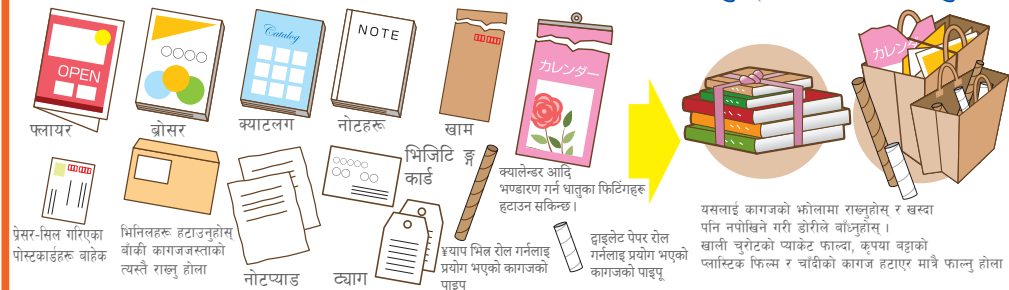 OPEN
Catalog
NOTE
カレンダー
カレンダー
फ्लायर
ब्रोसर
क्याटलग
नोटहरू
खाम
क्यालेन्डर आदि
भण्डारण गर्न धातुका फिटिंगहरू
हटाउन सकिन्छ ।
प्रेसर-सिल गरिएका
पोस्टकार्डहरू बाहेक
भिनिलहरू हटाउनुहोस्
बाँकी कागजजस्ताको
त्यस्तै राख्नु होला
नोटप्याड
भिजिटि ङ्ग
कार्ड
ट्याग
¥याप भित्र रोल गर्नलाइ
प्रयोग भएको कागजको
पाइप
ट्वाइलेट पेपर रोल
गर्नलाइ प्रयोग भएको
कागजको पाइपू
यसलाई कागजको झोलामा राख्नुहोस् र खस्दा
पनि नपोखिने गरी डोरीले बाँध्नुहोस् ।
खाली चुरोटको प्याकेट फाल्दा, कृपया बट्टाको
प्लास्टिक फिल्म र चाँदीको कागज हटाएर मात्रै फाल्नु होला